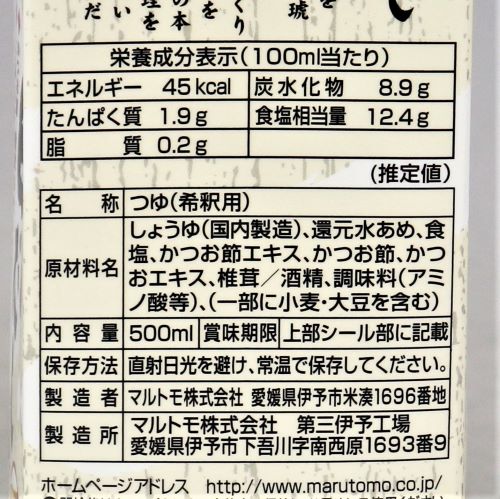 を
琥
くり
を
の本
理を
い
だ
栄養成分表示(100ml当たり)
エネルギー 45kcal 炭水化物 8.9g
たんぱく質 1.9g 食塩相当量 12.4g
脂質 0.2g
(推定値)
名称 つゆ(希釈用)
原材料名 しょうゆ(国内製造)、還元水あめ、食
塩、かつお節エキス、かつお節、かつ
おエキス、椎茸/酒精、調味料(アミ
ノ酸等)、(一部に小麦・大豆を含む)
内容量 500ml 賞味期限 上部シール部に記載
保存方法 直射日光を避け、常温で保存してください。
製造者 マルトモ株式会社 愛媛県伊予市米湊1696番地
製造所 マルトモ株式会社 第三伊予工場
愛媛県伊予市下吾川字南西原1693番9
ホームページアドレス http://www.marutomo.co.jp/